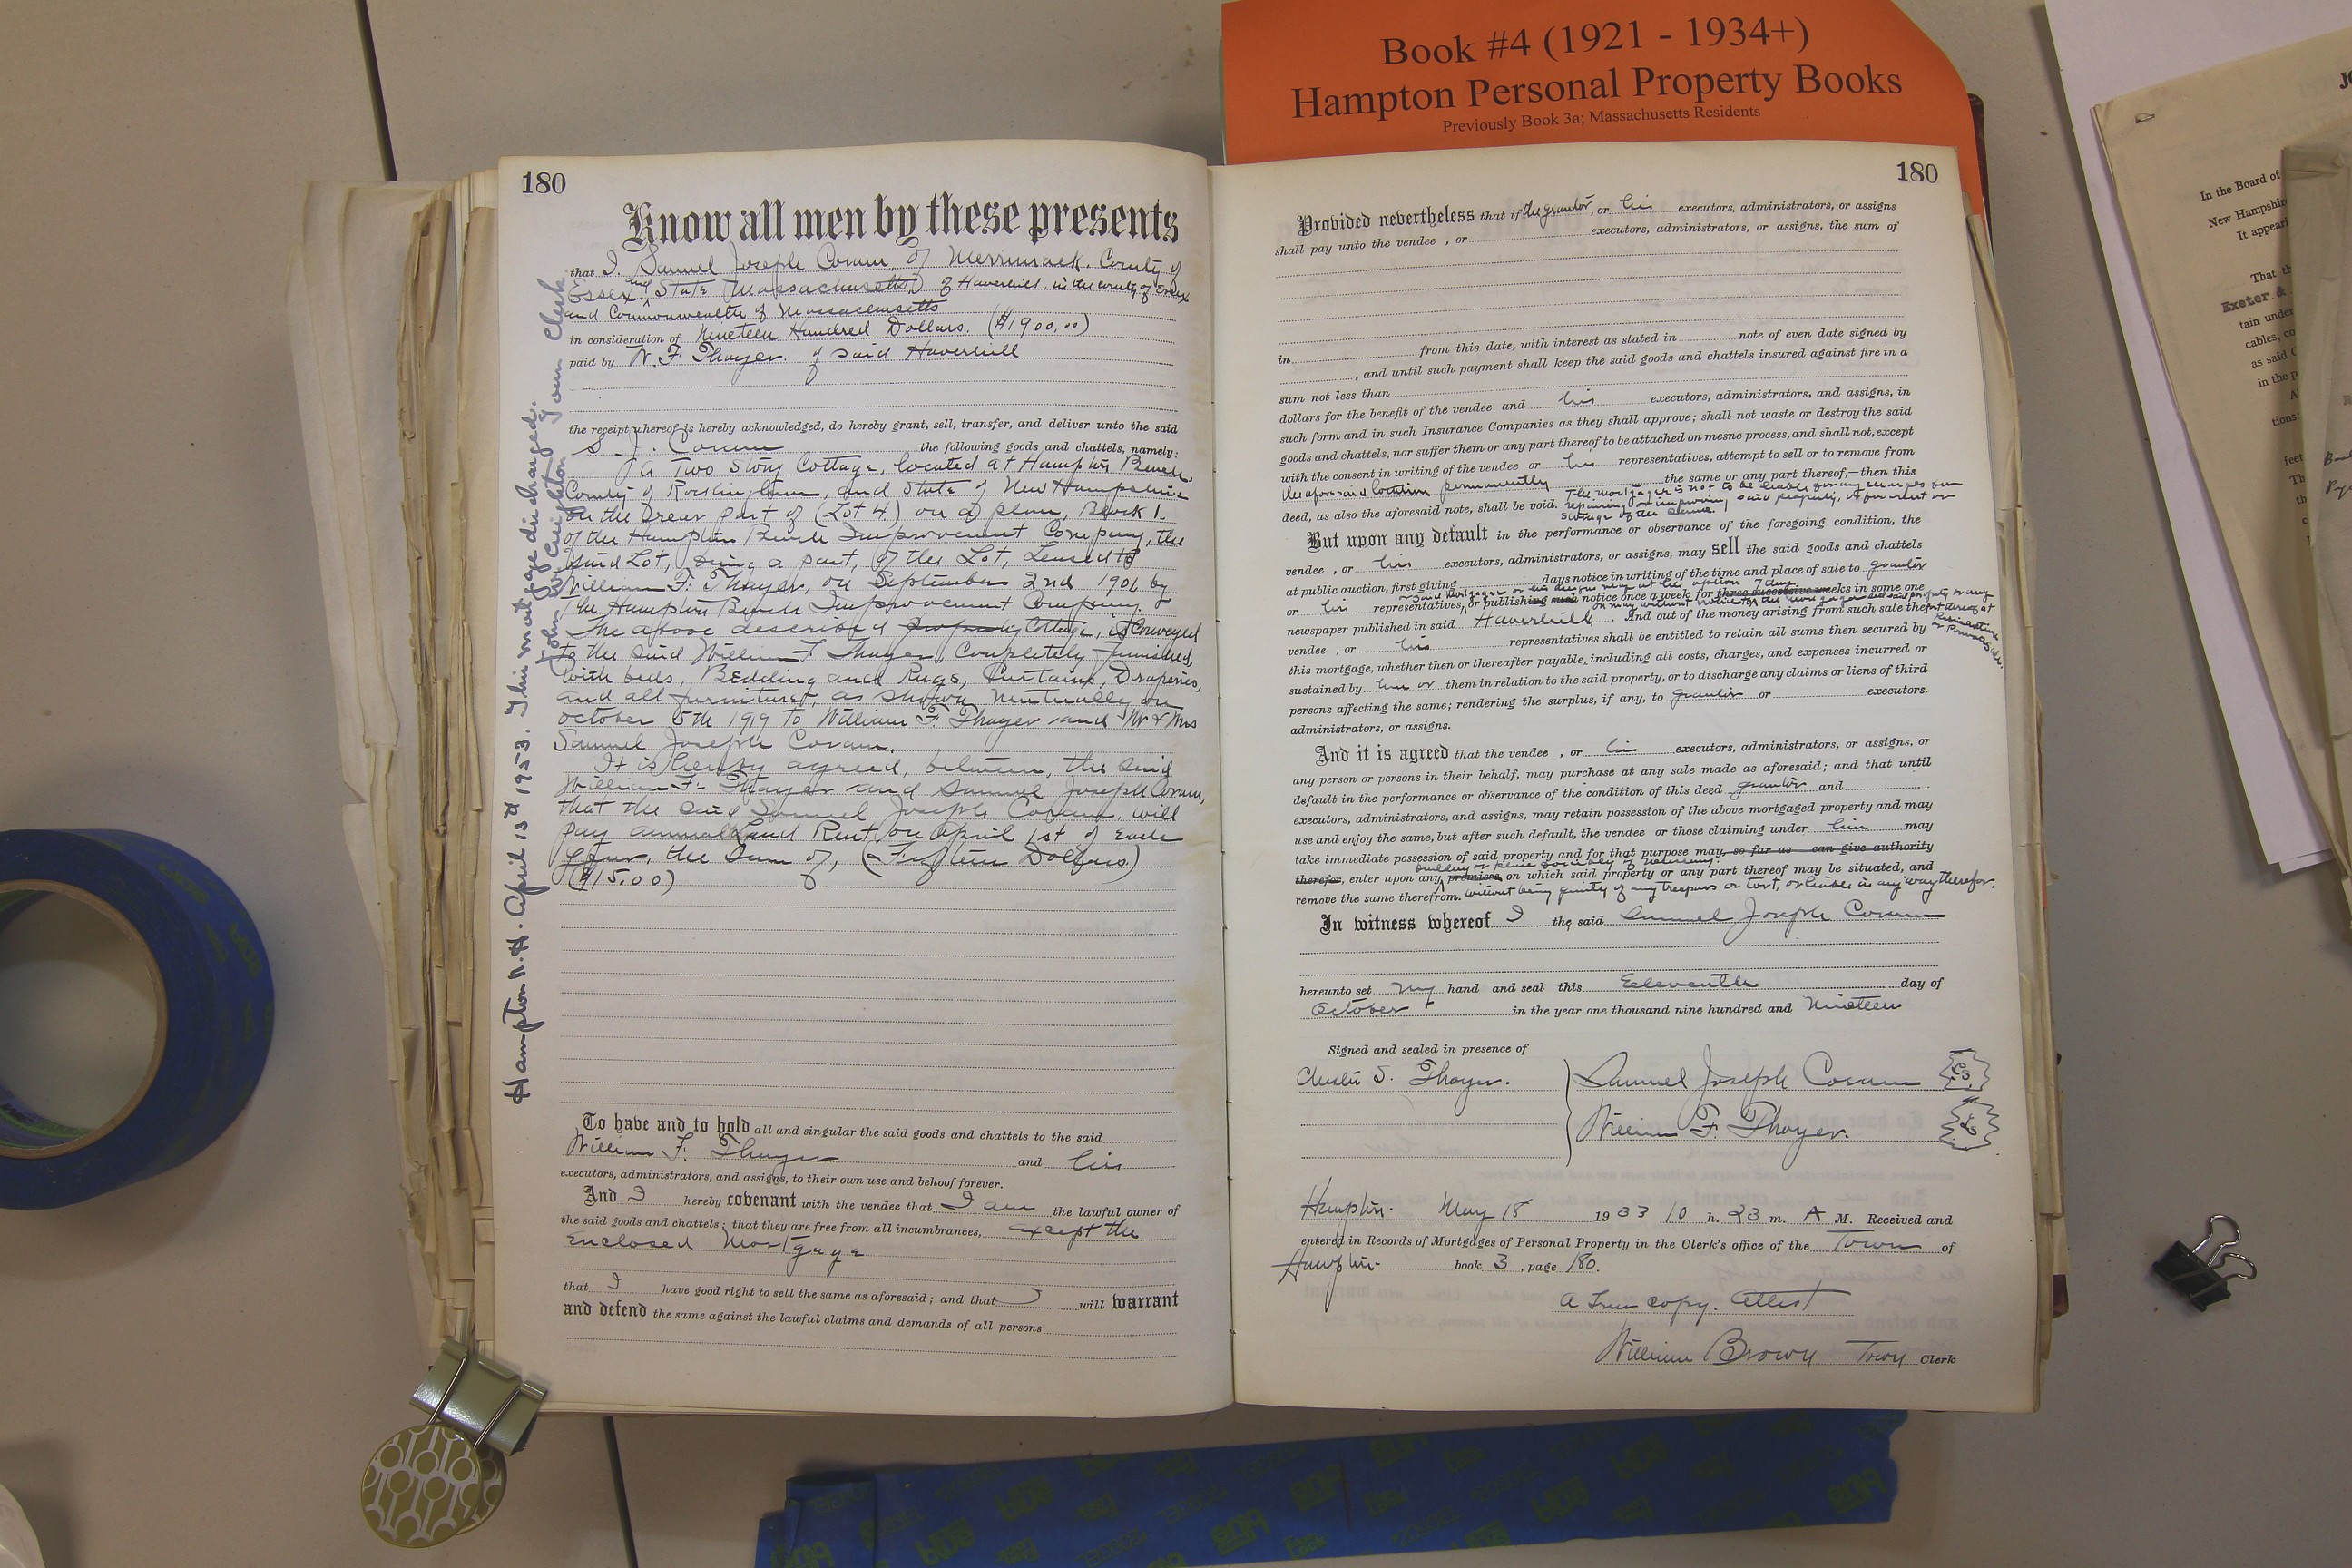 Book #4 (1921 - 1934+)
Hampton Personal Property Books
Previously Book 3a; Massachusetts Residents
180
Know all men by these presents
that I, Samuel Joseph Coram, of Merrimack, County of
Essex, and State (Massachusetts) of Haverhill, in the county of Essex
and Commonwealth of Massachusetts
in consideration of Nineteen Hundred Dollars. ($1900.00)
paid by W. F. Thayer. of said Haverhill
the receipt whereof is hereby acknowledged, do hereby grant, sell, transfer, and deliver unto the said
S. J. Coram the following goods and chattels, namely:
A Two Story Cottage, located at Hampton Beach,
County of Rockingham, and State of New Hampshire
on the rear part of (Lot 4) on a plan, Block 1.
of the Hampton Beach Improvement Company, the
said Lot, being a part, of the Lot, Leased to
William F. Thayer, on September 2nd 1901 by
The Hampton Beach Improvement Company.
The above described property Cottage, is Conveyed
to the said William F. Thayer, Completely furnished,
with beds, Bedding and Rugs, Curtains, Draperies,
and all furniture, as shown mutually on
October 5th 1919 to William F. Thayer and Mr & Mrs
Samuel Joseph Coram.
It is hereby agreed, between, the said
William F. Thayer and Samuel Joseph Coram,
that the said Samuel Joseph Coram, will
pay annual Land Rent, on April 1st of Each
year, the Sum of, (Fifteen Dollars)
($15.00)
To have and to hold all and singular the said goods and chattels to the said
William F. Thayer and his
executors, administrators, and assigns, to their own use and behoof forever.
And I hereby covenant with the vendee that I am the lawful owner of
the said goods and chattels; that they are free from all incumbrances, except the
Enclosed Mortgage
that I have good right to sell the same as aforesaid; and that will warrant
and defend the same against the lawful claims and demands of all persons
Hampton N.H. April 13th 1953. This mortgage discharged.
John W. Creighton Town Clerk
180
Provided nevertheless that if the grantor, or his executors, administrators, or assigns
shall pay unto the vendee , or executors, administrators, or assigns, the sum of
in from this date, with interest as stated in note of even date signed by
, and until such payment shall keep the said goods and chattels insured against fire in a
sum not less than
dollars for the benefit of the vendee and his executors, administrators, and assigns, in
such form and in such Insurance Companies as they shall approve; shall not waste or destroy the said
goods and chattels, nor suffer them or any part thereof to be attached on mesne process, and shall not, except
with the consent in writing of the vendee or his representatives, attempt to sell or to remove from
the aforesaid location permanently the same or any part thereof,—then this
deed, as also the aforesaid note, shall be void. The mortgagee is not to be liable for any charges for
repairing or improving said property, or for rent or
storage of the same.
But upon any default in the performance or observance of the foregoing condition, the
vendee , or his executors, administrators, or assigns, may sell the said goods and chattels
at public auction, first giving days notice in writing of the time and place of sale to grantor
or his representatives, or publishing such notice once a week for three successive weeks in some one
newspaper published in said Haverhill. And out of the money arising from such sale the
vendee , or his representatives shall be entitled to retain all sums then secured by
this mortgage, whether then or thereafter payable, including all costs, charges, and expenses incurred or
sustained by him or them in relation to the said property, or to discharge any claims or liens of third
persons affecting the same; rendering the surplus, if any, to grantor or executors.
administrators, or assigns.
And it is agreed that the vendee , or his executors, administrators, or assigns, or
any person or persons in their behalf, may purchase at any sale made as aforesaid; and that until
default in the performance or observance of the condition of this deed grantor and
executors, administrators, and assigns, may retain possession of the above mortgaged property and may
use and enjoy the same, but after such default, the vendee or those claiming under him may
take immediate possession of said property and for that purpose may, so far as can give authority
therefor, enter upon any premises on which said property or any part thereof may be situated, and
remove the same therefrom. without being guilty of any trespass or tort, or liable in any way therefor.
In witness whereof I the said Samuel Joseph Coram
hereunto set my hand and seal this Eeleventh day of
October in the year one thousand nine hundred and Nineteen
Signed and sealed in presence of
S. Thayer. Samuel Joseph Coram LS.
William F. Thayer. LS
Hampton. May 18 1933 10 h. 23 m. A M. Received and
entered in Records of Mortgages of Personal Property in the Clerk's office of the Town of
Hampton book 3 , page 180.
A True copy. Attest
William Brown Town Clerk
In the Board of
New Hampshire
It appear
That th
Exeter &
tain under
cables, co
as said C
in the p
tions
feet